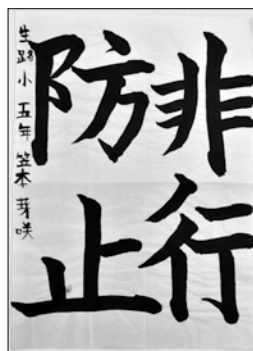 非行
防止
生路小 五年 笠本 芽咲